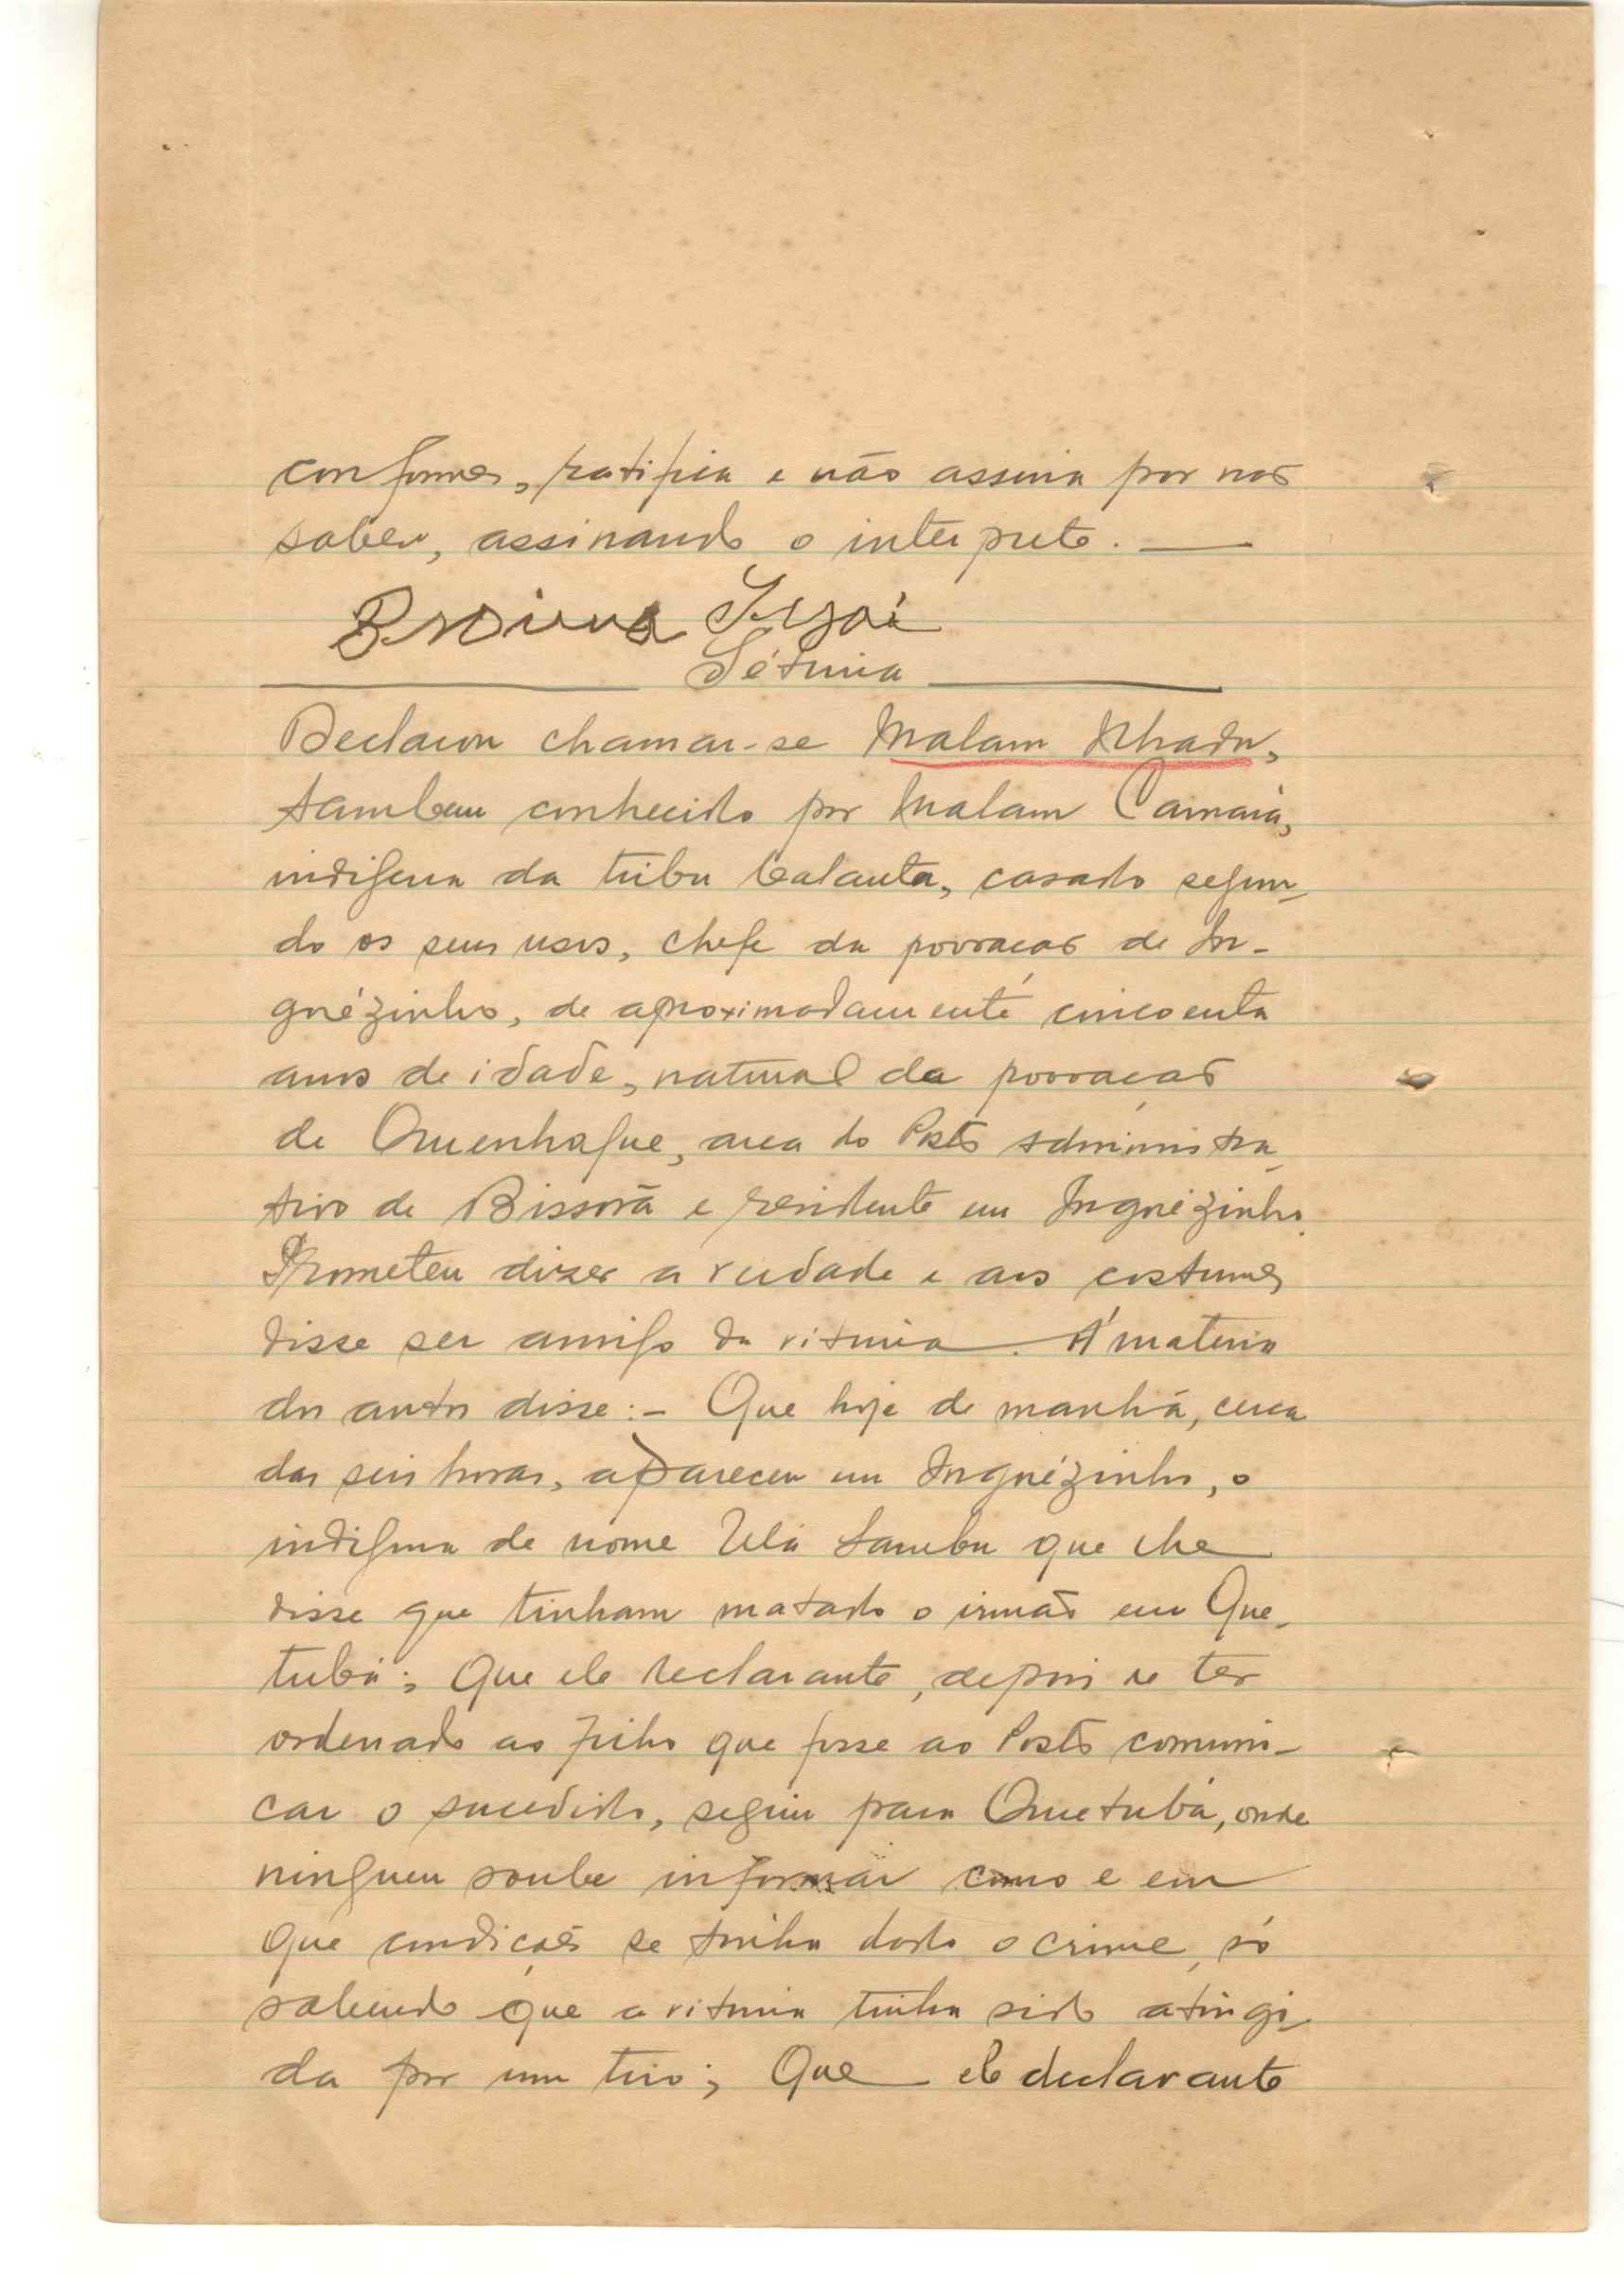 conformes, ratifica e não assina por não
saber, assinando o interprete.
Sétima
Declarou chamar-se Malam Nhadu,
tambem conhecido por Malam Camará,
indigena da tribu balanta, casado segun-
do os seus usos, chefe da povoação de In-
guézinho, de aproximadamente cincoenta
anos de idade, natural da povoação
de Quenhaque, area do Posto Administra-
tivo de Bissorã e residente em Inguézinho.
Prometeu dizer a verdade e aos costumes
disse ser amigo da vitima. Á materia
dos autos disse:- Que hoje de manhã, cerca
das seis horas, apareceu em Inguézinho, o
indigena de nome Ulá Sambu que lhe
disse que tinham matado o irmão em Que-
tubá; Que ele declarante, depois de ter
ordenado ao filho que fosse ao Posto comuni-
car o sucedido, seguiu para Quetubá, onde
ninguem soube informar como e em
que condições se tinha dado o crime, só
sabendo que a vitima tinha sido atingi-
da por um tiro; Que ele declarante